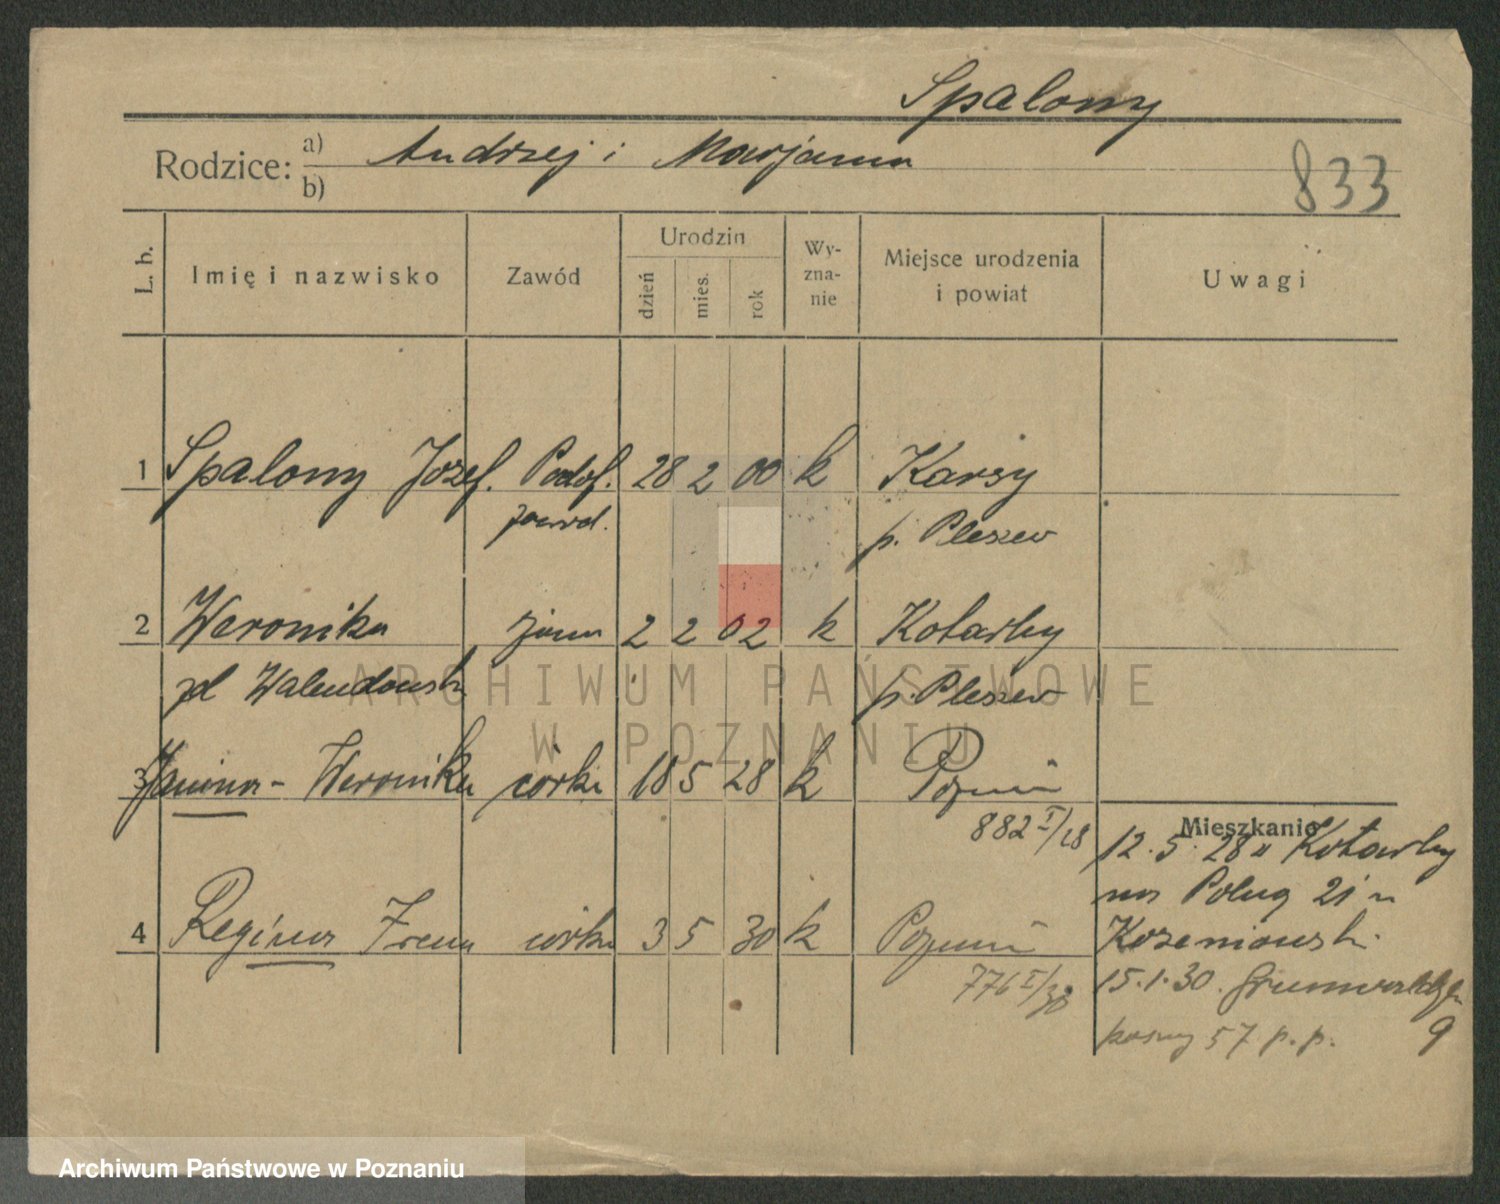 Spalony
Rodzice: a) Andrzej i Marjanna
b)
833
L. b.
Imię i nazwisko
Zawód
Urodzin
dzień
mies.
rok
Wy-
zna-
nie
Miejsce urodzenia
i powiat
Uwagi
1 Spalony Józef. Podof. 28 2 00 k Karsy
zawod. p. Pleszew
2 Weronika żona 2 2 02 k Kotarby
zd Walendowska p. Pleszew
3 Janina - Weronika córka 18 5 28 k Poznań
882 I/28
4 Regina Irena córka 3 5 30 k Poznań
776 I/30
Mieszkanie
12.5.28 u Kotarby
na Poług 21 u
Kozeniowsk.
15.1.30. Grunwaldzka
koszary 57 p. p. 9
ARCHIWUM PAŃSTWOWE
W POZNANIU
Archiwum Państwowe w Poznaniu